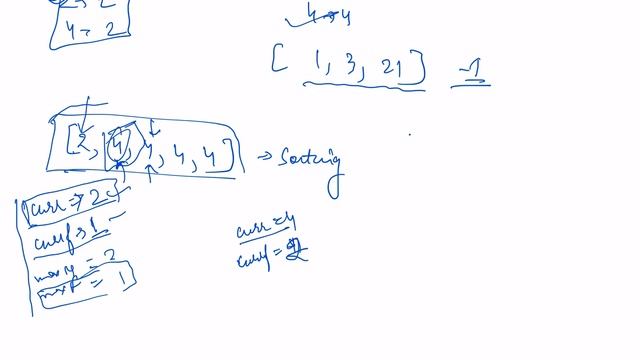 4 → 2
4 → 4
[ 1, 3, 21 ] -1
[2, 4, 4, 4, 4] → Sorting
curr → 2
currf → 1
curr = 4
maxy = 2
maxf = 1